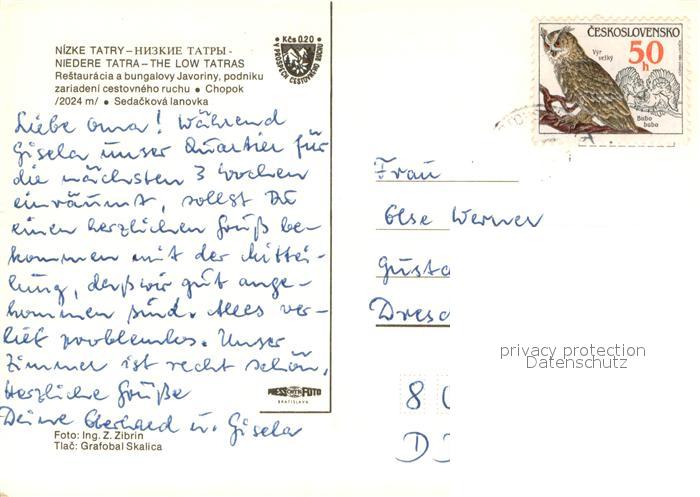 NÍZKE TATRY – НИЗКИЕ ТАТРЫ -
NIEDERE TATRA – THE LOW TATRAS
Reštaurácia a bungalovy Javoriny, podniku
zariadení cestovného ruchu • Chopok
/2024 m/ • Sedačková lanovka
Kčs 0.20
V PROSPECH CESTOVNÉHO RUCHU
Liebe Oma! Während
Gisela unser Quartier für
die nächsten 3 Wochen
einräumt, sollst Du
einen herzlichen Gruß be-
kommen mit der Mittei-
lung, daß wir gut ange-
kommen sind. Alles ver-
lief problemlos. Unser
Zimmer ist recht schön,
Herzliche Grüße
Deine Eberhard u. Gisela
Foto: Ing. Z. Zibrin
Tlač: Grafobal Skalica
PRESSFOTO
BRATISLAVA
ČESKOSLOVENSKO
50 h
Výr
velký
Bubo
bubo
Frau
Else Werner
Gusta
Dresd
8
D
privacy protection
Datenschutz